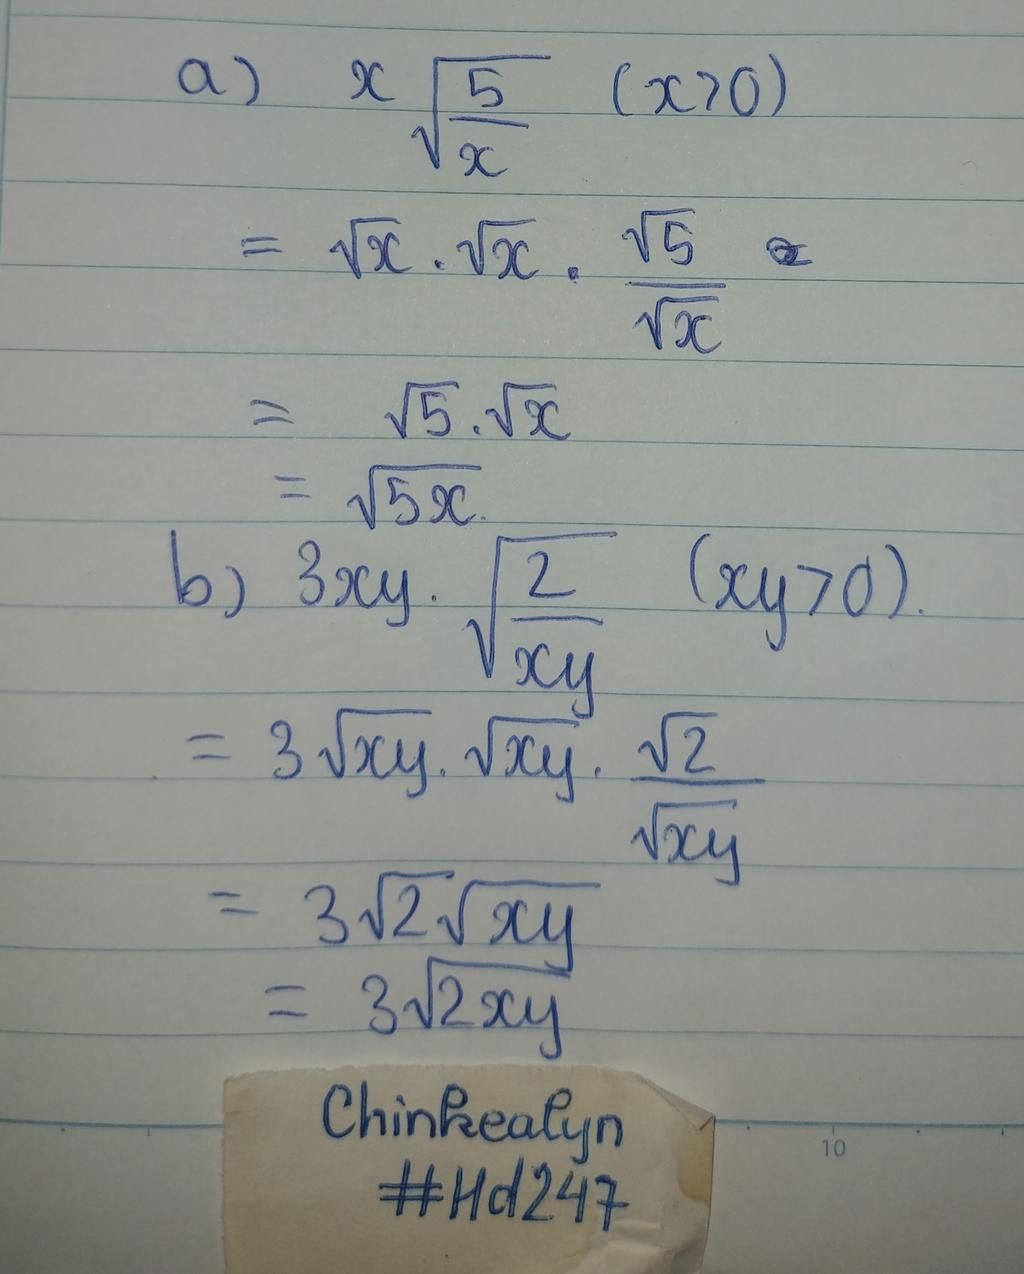 a) x√(5/x) (x>0)
= √x . √x . √5/√x
= √5 . √x
= √5x.
b) 3xy . √(2/xy) (xy>0).
= 3√xy . √xy . √2/√xy
= 3√2√xy
= 3√2xy
10
Chinkealyn
#Hd247